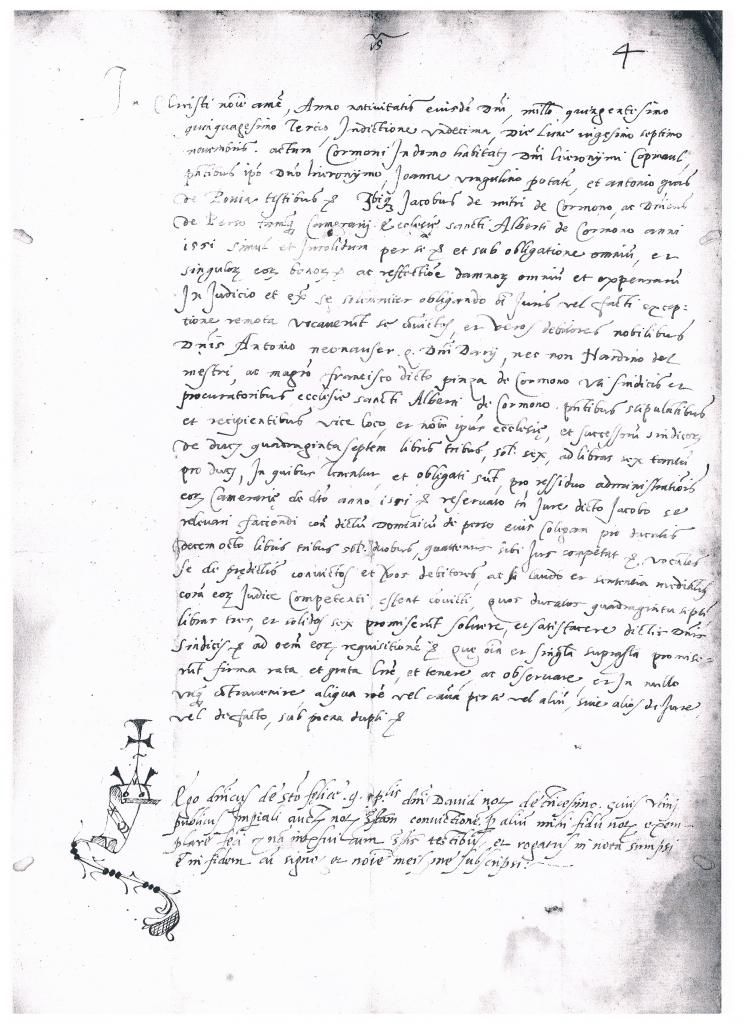 4
In Christi noīe amē, Anno nativitatis eiusdē Dnī, millō quingentesimo
quinquagesimo Tercio, Indictione undecima, Die Lune vigesimo septimo
novembris. actum Cormoni In domo habitat̄ Dnī hieronymi
pn̄tibus ipō Dnō hieronymo, Joanne potate, et antonio
de testibus Ibiq̄ Jacobus de mistri de Cormono, ac
de Perso Camerarij Ecclesię sancti Alberti de Cormono anni
1551 simul et Insolidum per se et sub obligatione omniū, et
singuloȝ eoȝ bonoȝ ac reffectiōe damnoȝ omniū et expensarū
In Judicio et ex̄ se solemniter obligando oī Juris vel facti excep-
tione remota vocaverūt se convictos, et veros debitores nobilibus
Dnīs Antonio neohauser q. Dnī Darij, nec non Nardino del
mestri, ac magrō francisco dicto pinza de Cormono uti sindicis et
procuratoribus ecclesię sancti Alberti de Cormono pn̄tibus stipulātibus
et recipientibus vice loco, et noīe ipsius ecclesię, et successorū sindicoȝ
de ducȝ quadraginta septem libris tribus, sol: sex, ad libras sex
pro ducȝ, In quibus tenentur, et obligati sūt, pro ressiduo administratiōis
eoȝ Camerarię de dto anno 1551 reservato tn̄ Jure dicto Jacobo se
relevari faciendi con̄ dictū Dominicū de perso eius pro ducatis
decem octo libris tribus sol: duobus, quatenus sibi Jus competat vocantes
se de predictis convictos et veros debitores, ac si laudo et sententia mediātib̄
corā eoȝ Judice Competenti essent convicti, quos ducatos quadraginta septē
libras tres, et solidos sex promiserūt solvere, et satisfacere dictis Dnīs
sindicis ad oēm eoȝ requisitionē Quę oīa et singlā suprasta promise-
rūt firma rata et grata hre, et tenere ac observare et In nullo
unq̄ contravenire aliqua rōe vel causa per se vel aliū, sive alios de Jure
vel de facto, sub poena dupli

Ego dnīcus de sto felice q. dnī David not̄
publicus Imperiali auctē not̄ convictionē aliū mihi fidū not̄ exem-
plarē cum testibus, et rogatus in notā sumpsi
in fidem cū signo et noīe meis me subscripsi: